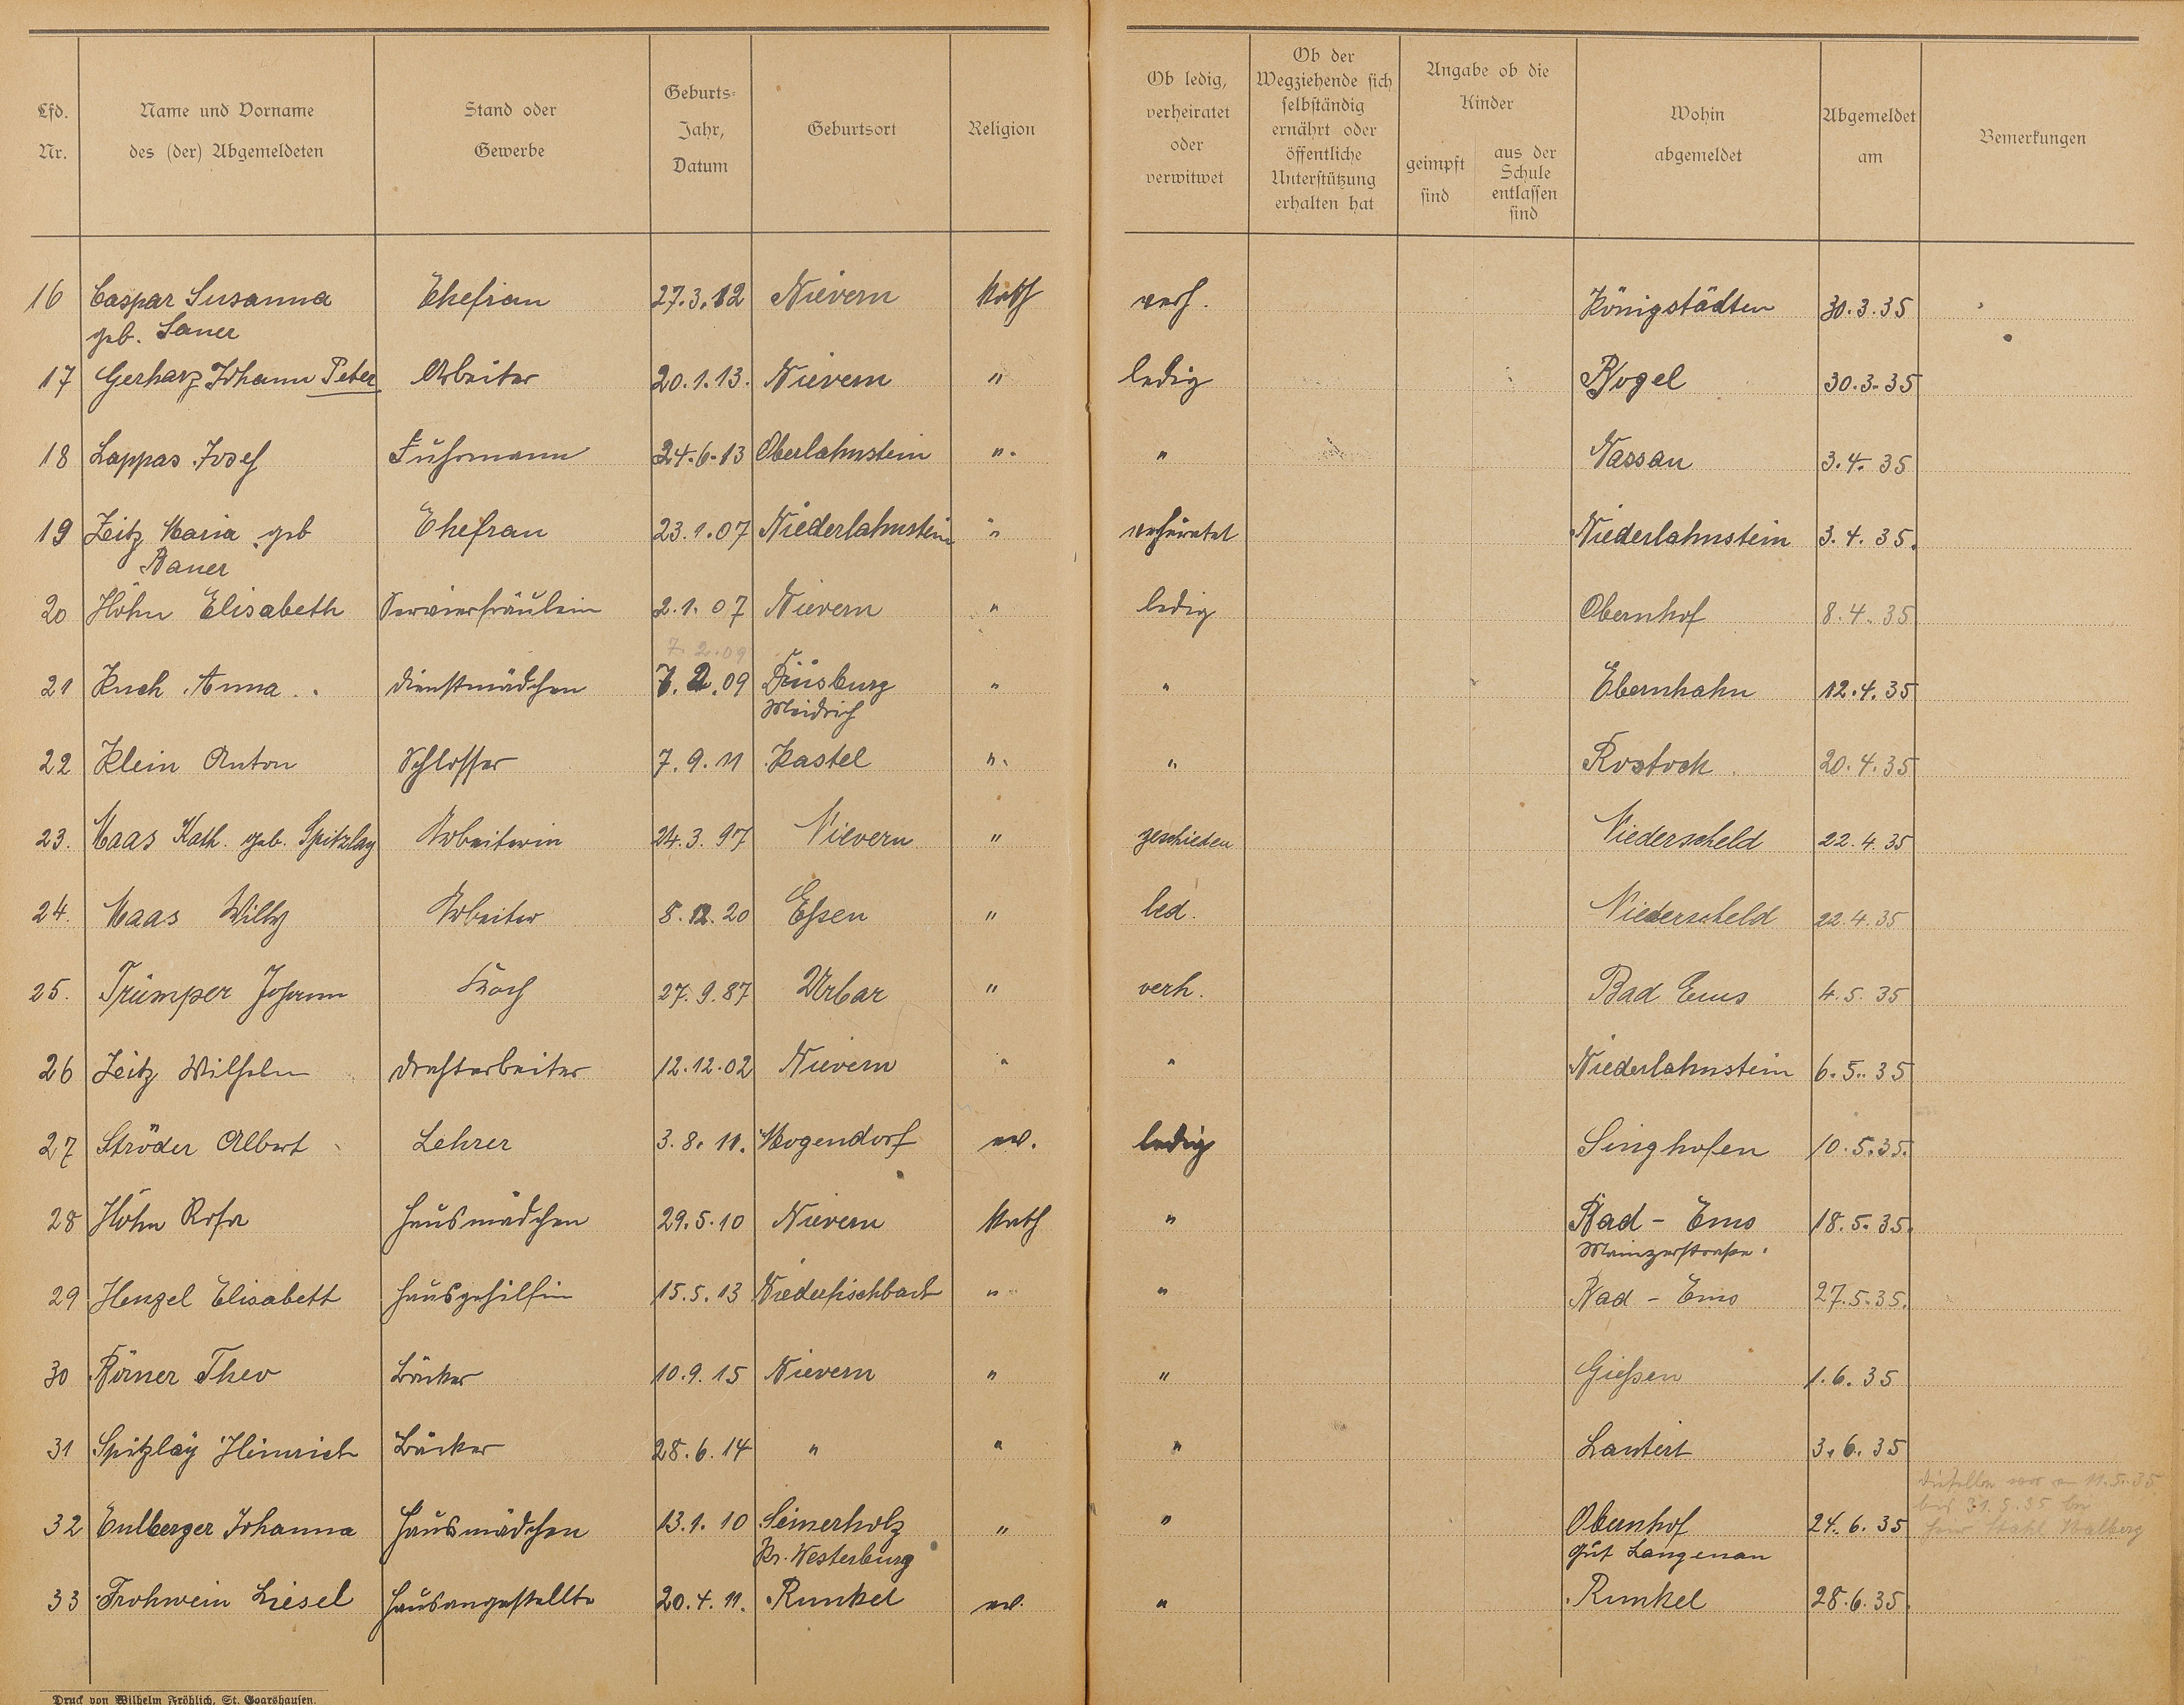 Lfd. Nr.
Name und Vorname des (der) Abgemeldeten
Stand oder Gewerbe
Geburts-Jahr, Datum
Geburtsort
Religion
Ob ledig, verheiratet oder verwitwet
Ob der Wegziehende sich selbständig ernährt oder öffentliche Unterstützung erhalten hat
Angabe ob die Kinder
geimpft sind
aus der Schule entlassen sind
Wohin abgemeldet
Abgemeldet am
Bemerkungen
16 Caspar Susanna Ehefrau 27.3.12 Nievern Kath verh. Königstädten 30.3.35
geb. Sauer
17 Gerharz Johann Peter Arbeiter 20.1.13. Nievern " ledig Bogel 30.3.35
18 Lappas Josef Fuhrmann 24.6.13 Oberlahnstein " " Nassau 3.4.35
19 Zeitz Maria geb Ehefrau 23.1.07 Niederlahnstein " verheiratet Niederlahnstein 3.4.35.
Bauer
20 Höhn Elisabeth Servierfräulein 2.1.07 Nievern " ledig Obernhof 8.4.35
7.2.09
21 Kuch Anna Dienstmädchen 7.2.09 Duisburg " " Ebernhahn 12.4.35
Meidrich
22 Klein Anton Schlosser 7.9.11 Kastel " " Rostock 20.4.35
23. Maas Kath. geb. Spitzlay Arbeiterin 24.3.97 Nievern " geschieden Niederscheld 22.4.35
24. Maas Willy Arbeiter 8.12.20 Eßen " led. Niederscheld 22.4.35
25. Trümper Johann Koch 27.9.87 Urbar " verh. Bad Ems 4.5.35
26 Zeitz Wilhelm Drahtarbeiter 12.12.02 Nievern " " Niederlahnstein 6.5.35
27 Ströder Albert Lehrer 3.8.11. Mogendorf ev. ledig Singhofen 10.5.35.
28 Höhn Rosa Hausmädchen 29.5.10 Nievern Kath " Bad - Ems 18.5.35.
Mainzerstraße.
29 Henzel Elisabeth Hausgehilfin 15.5.13 Niederfischbach " " Bad - Ems 27.5.35.
30 Börner Theo Bäcker 10.9.15 Nievern " " Gießen 1.6.35
31 Spitzlay Heinrich Bäcker 28.6.14 " " " Lautert 3.6.35
32 Eulberger Johanna Hausmädchen 13.1.10 Seinerholz " " Obernhof 24.6.35
Kr. Westerburg
Gut Langenau
Dieselbe war am 11.5.35
bis 31.5.35 bei
33 Frohwein Liesel Hausangestellte 20.4.11. Runkel ev. " Runkel 28.6.35.
Druck von Wilhelm Fröhlich, St. Goarshausen.